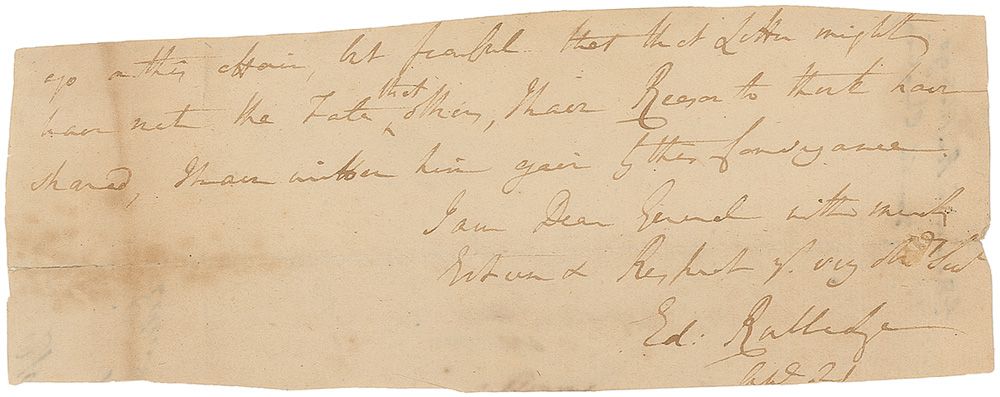 ago on this affair, but fearful that that Letter might
have met the Fate that others, I have Reason to think have
shared, I have written him again by this Conveyance.
I am Dear General with much
Esteem & Respect yr. very Obd. Servt
Ed: Rutledge